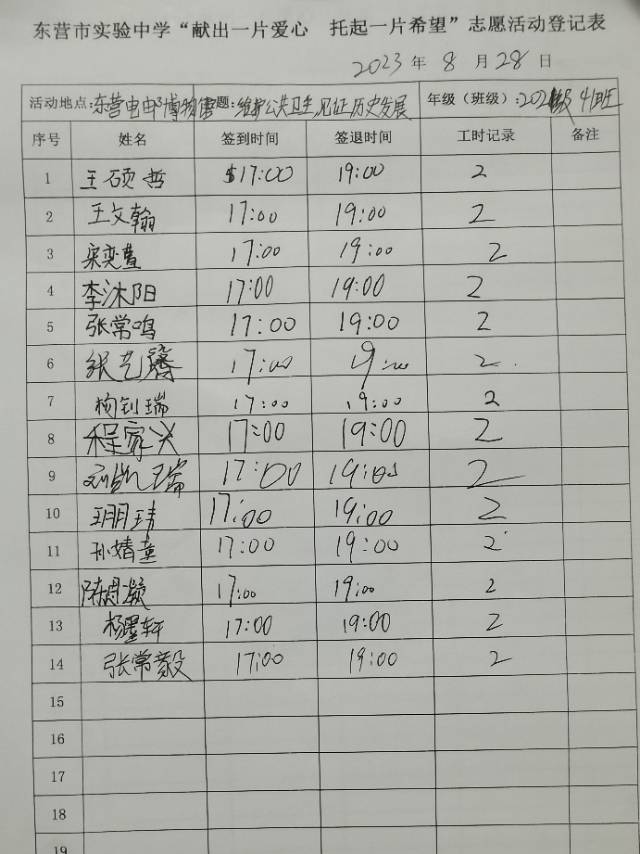 东营市实验中学“献出一片爱心 托起一片希望”志愿活动登记表
2023 年 8 月 28 日
活动地点:东营电邮博物馆 题:维护公共卫生,见证历史发展 年级(班级):202 级 4班
序号 姓名 签到时间 签退时间 工时记录 备注
1 王硕哲 17:00 19:00 2
2 王文翰 17:00 19:00 2
3 宋奕萱 17:00 19:00 2
4 李沐阳 17:00 19:00 2
5 张常鸣 17:00 19:00 2
6 张艺腾 17:00 19:00 2
7 杨钊瑞 17:00 19:00 2
8 程家兴 17:00 19:00 2
9 刘凯瑞 17:00 19:00 2
10 王玥玮 17:00 19:00 2
11 孙婧童 17:00 19:00 2
12 陈凝 17:00 19:00 2
13 杨墨轩 17:00 19:00 2
14 张常毅 17:00 19:00 2
15
16
17
18
19